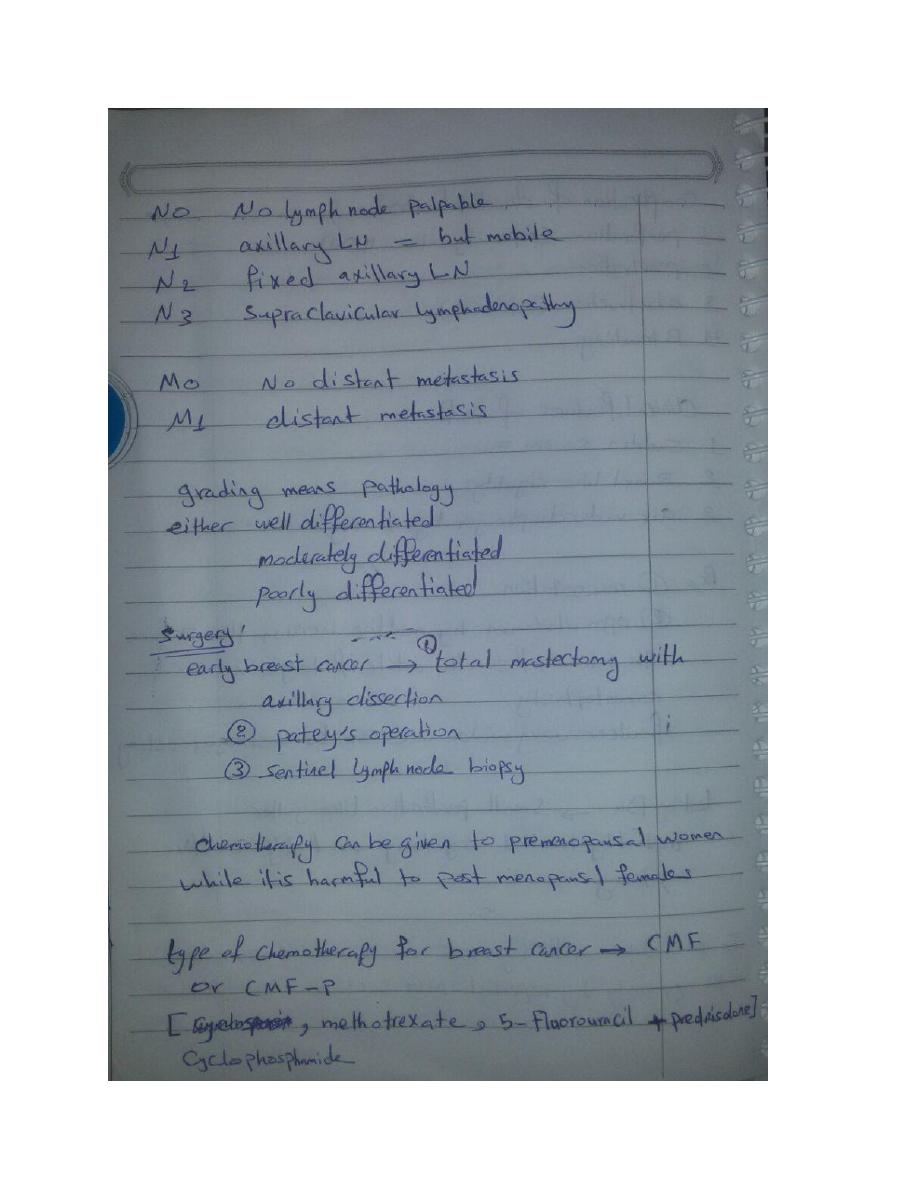 N0 No lymph node palpable
N1 axillary LN = but mobile
N2 fixed axillary LN
N3 Supraclavicular lymphadenopathy
M0 No distant metastasis
M1 distant metastasis
grading means pathology
either well differentiated
moderately differentiated
poorly differentiated
Surgery
early breast cancer → ① total mastectomy with
axillary dissection
② patey's operation
③ sentinel lymph node biopsy
chemotherapy can be given to premenopausal women
while it is harmful to post menopausal females
type of chemotherapy for breast cancer → CMF
or CMF-P
[ , methotrexate, 5-Fluorouracil + prednisolone]
Cyclophosphamide